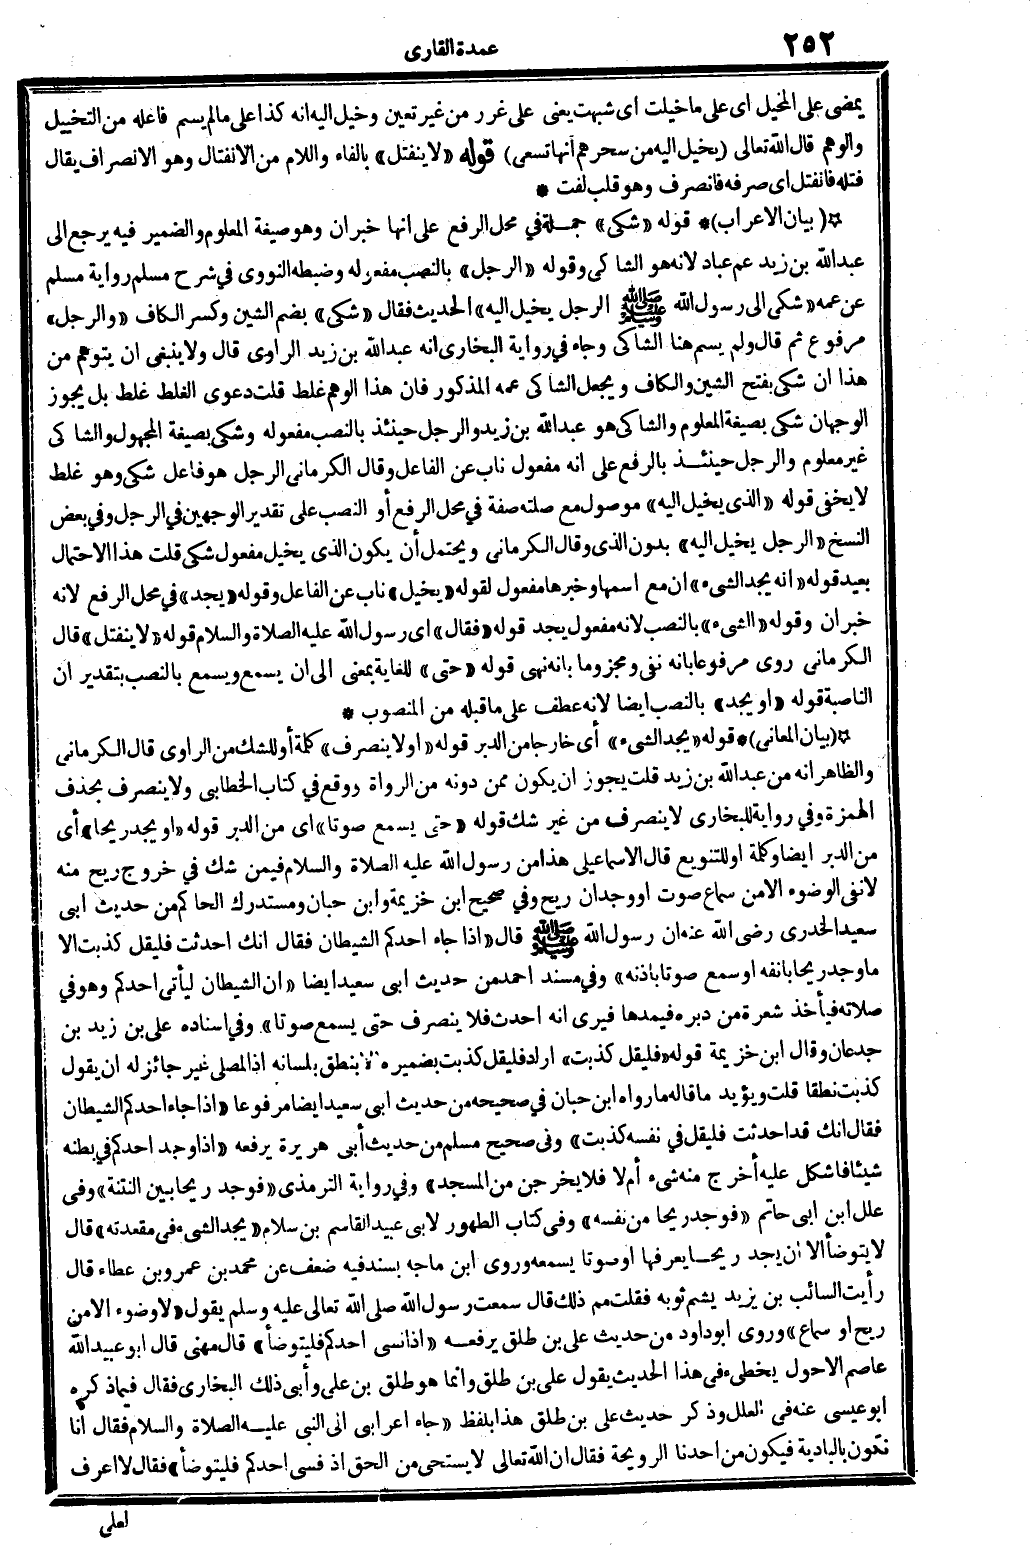 ٢٥٢
عمدة القارى
يمضى على المخيل اى على ماخيلت اى شبهت يعنى على غرر من غير تعين وخيل اليه انه كذا على مالم يسم فاعله من التخييل
والوهم قال الله تعالى (يخيل اليه من سحرهم أنها تسعى) قوله «لاينفتل» بالفاء واللام من الانفتال وهو الانصراف يقال
فتله فانفتل اى صرفه فانصرف وهو قلب لفت *
✩( بيان الاعراب)* قوله «شكى» جملة في محل الرفع على انها خبر ان وهو صيغة المعلوم والضمير فيه يرجع الى
عبدالله بن زيد عم عباد لانه هو الشاكى وقوله «الرجل» بالنصب مفعوله وضبطه النووى في شرح مسلم رواية مسلم
عن عمه «شكى الى رسول الله ﷺ الرجل يخيل اليه» الحديث فقال «شكى» بضم الشين وكسر الكاف «والرجل»
مرفوع ثم قال ولم يسم هنا الشاكى وجاء في رواية البخارى انه عبدالله بن زيد الراوى قال ولا ينبغى ان يتوهم من
هذا ان شكى بفتح الشين والكاف ويجعل الشاكى عمه المذكور فان هذا الوهم غلط قلت دعوى الغلط غلط بل يجوز
الوجهان شكى بصيغة المعلوم والشاكى هو عبدالله بن زيد والرجل حينئذ بالنصب مفعوله وشكى بصيغة المجهول والشاكى
غير معلوم والرجل حينئـذ بالرفع على انه مفعول ناب عن الفاعل وقال الكرمانى الرجل هو فاعل شكى وهو غلط
لايخفى قوله «الذى يخيل اليه» موصول مع صلته صفة في محل الرفع أو النصب على تقدير الوجهين في الرجل وفي بعض
النسخ «الرجل يخيل اليه» بدون الذى وقال الكرمانى ويحتمل أن يكون الذى يخيل مفعول شكى قلت هذا الاحتمال
بعيد قوله «انه يجد الشىء» ان مع اسمها وخبرها مفعول لقوله «يخيل» ناب عن الفاعل وقوله «يجد» في محل الرفع لانه
خبر ان وقوله «الشىء» بالنصب لانه مفعول يجد قوله «فقال» اى رسول الله عليه الصلاة والسلام قوله «لاينفتل» قال
الكرمانى روى مرفوعا بانه نفى ومجزوما بانه نهى قوله «حتى» للغاية بمعنى الى ان يسمع ويسمع بالنصب بتقدير ان
الناصبة قوله «او يجد» بالنصب ايضا لانه عطف على ماقبله من المنصوب *
✩(بيان المعانى)* قوله «يجد الشىء» أى خارجا من الدبر قوله «اولا ينصرف» كلمة أو للشك من الراوى قال الكرمانى
والظاهر انه من عبدالله بن زيد قلت يجوز ان يكون ممن دونه من الرواة ووقع في كتاب الخطابى ولاينصرف بحذف
الهمزة وفي رواية للبخارى لاينصرف من غير شك قوله «حتى يسمع صوتا» اى من الدبر قوله «او يجد ريحا» أى
من الدبر ايضا وكلمة او للتنويع قال الاسماعيلى هذا من رسول الله عليه الصلاة والسلام فيمن شك في خروج ريح منه
لانفى الوضوء الا من سماع صوت او وجدان ريح وفي صحيح ابن خزيمة وابن حبان ومستدرك الحاكم من حديث ابى
سعيد الخدرى رضى الله عنه ان رسول الله ﷺ قال «اذا جاء احدكم الشيطان فقال انك احدثت فليقل كذبت الا
ما وجد ريحا بانفه او سمع صوتا باذنه» وفي مسند احمد من حديث ابى سعيد ايضا «ان الشيطان ليأتى احدكم وهو في
صلاته فيأخذ شعرة من دبره فيمدها فيرى انه احدث فلا ينصرف حتى يسمع صوتا» وفي اسناده على بن زيد بن
جدعان وقال ابن خزيمة قوله «فليقل كذبت» اراد فليقل كذبت بضميره لا ينطق بلسانه اذ المصلى غير جائز له ان يقول
كذبت نطقا قلت ويؤيد ماقاله مارواه ابن حبان في صحيحه من حديث ابى سعيد ايضا مرفوعا «اذا جاء احدكم الشيطان
فقال انك قد احدثت فليقل في نفسه كذبت» وفى صحيح مسلم من حديث أبى هريرة يرفعه «اذا وجد احدكم في بطنه
شيئا فاشكل عليه أخرج منه شىء أم لا فلا يخرجن من المسجد» وفي رواية الترمذى «فوجد ريحا بين اليتيه» وفى
علل ابن ابى حاتم «فوجد ريحا من نفسه» وفى كتاب الطهور لابى عبيد القاسم بن سلام «يجد الشىء فى مقعدته» قال
لا يتوضأ الا ان يجد ريحـا يعرفها او صوتا يسمعه وروى ابن ماجه بسند فيه ضعف عن محمد بن عمرو بن عطاء قال
رأيت السائب بن يزيد يشم ثوبه فقلت مم ذلك قال سمعت رسول الله صلى الله تعالى عليه وسلم يقول «لا وضوء الا من
ريح او سماع» وروى ابو داود من حديث على بن طلق يرفعـه «اذا فسى احدكم فليتوضأ» قال مهنى قال ابو عبيدالله
عاصم الاحول يخطىء فى هذا الحديث يقول على بن طلق وانما هو طلق بن على وأبى ذلك البخارى فقال فيما ذكره
ابو عيسى عنه فى العلل وذكر حديث على بن طلق هذا بلفظ «جاء اعرابى الى النبى عليـه الصلاة والسلام فقال انا
نكون بالبادية فيكون من احدنا الرويحة فقال ان الله تعالى لا يستحى من الحق اذ فسى احدكم فليتوضأ» فقال لا اعرف
لعلى